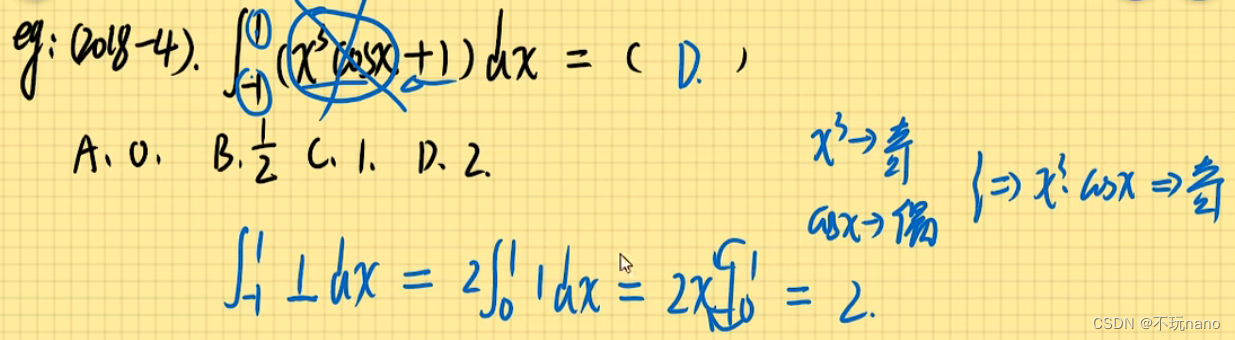 eg: (2018-4). ∫₋₁¹ (x³cosx + 1) dx = ( D. )
A、0. B. 1/2 C、1. D、2.
x³→奇
cosx→偶
} => x³·cosx => 奇
∫₋₁¹ 1 dx = 2∫₀¹ 1 dx = 2x|₀¹ = 2.
CSDN @不玩nano